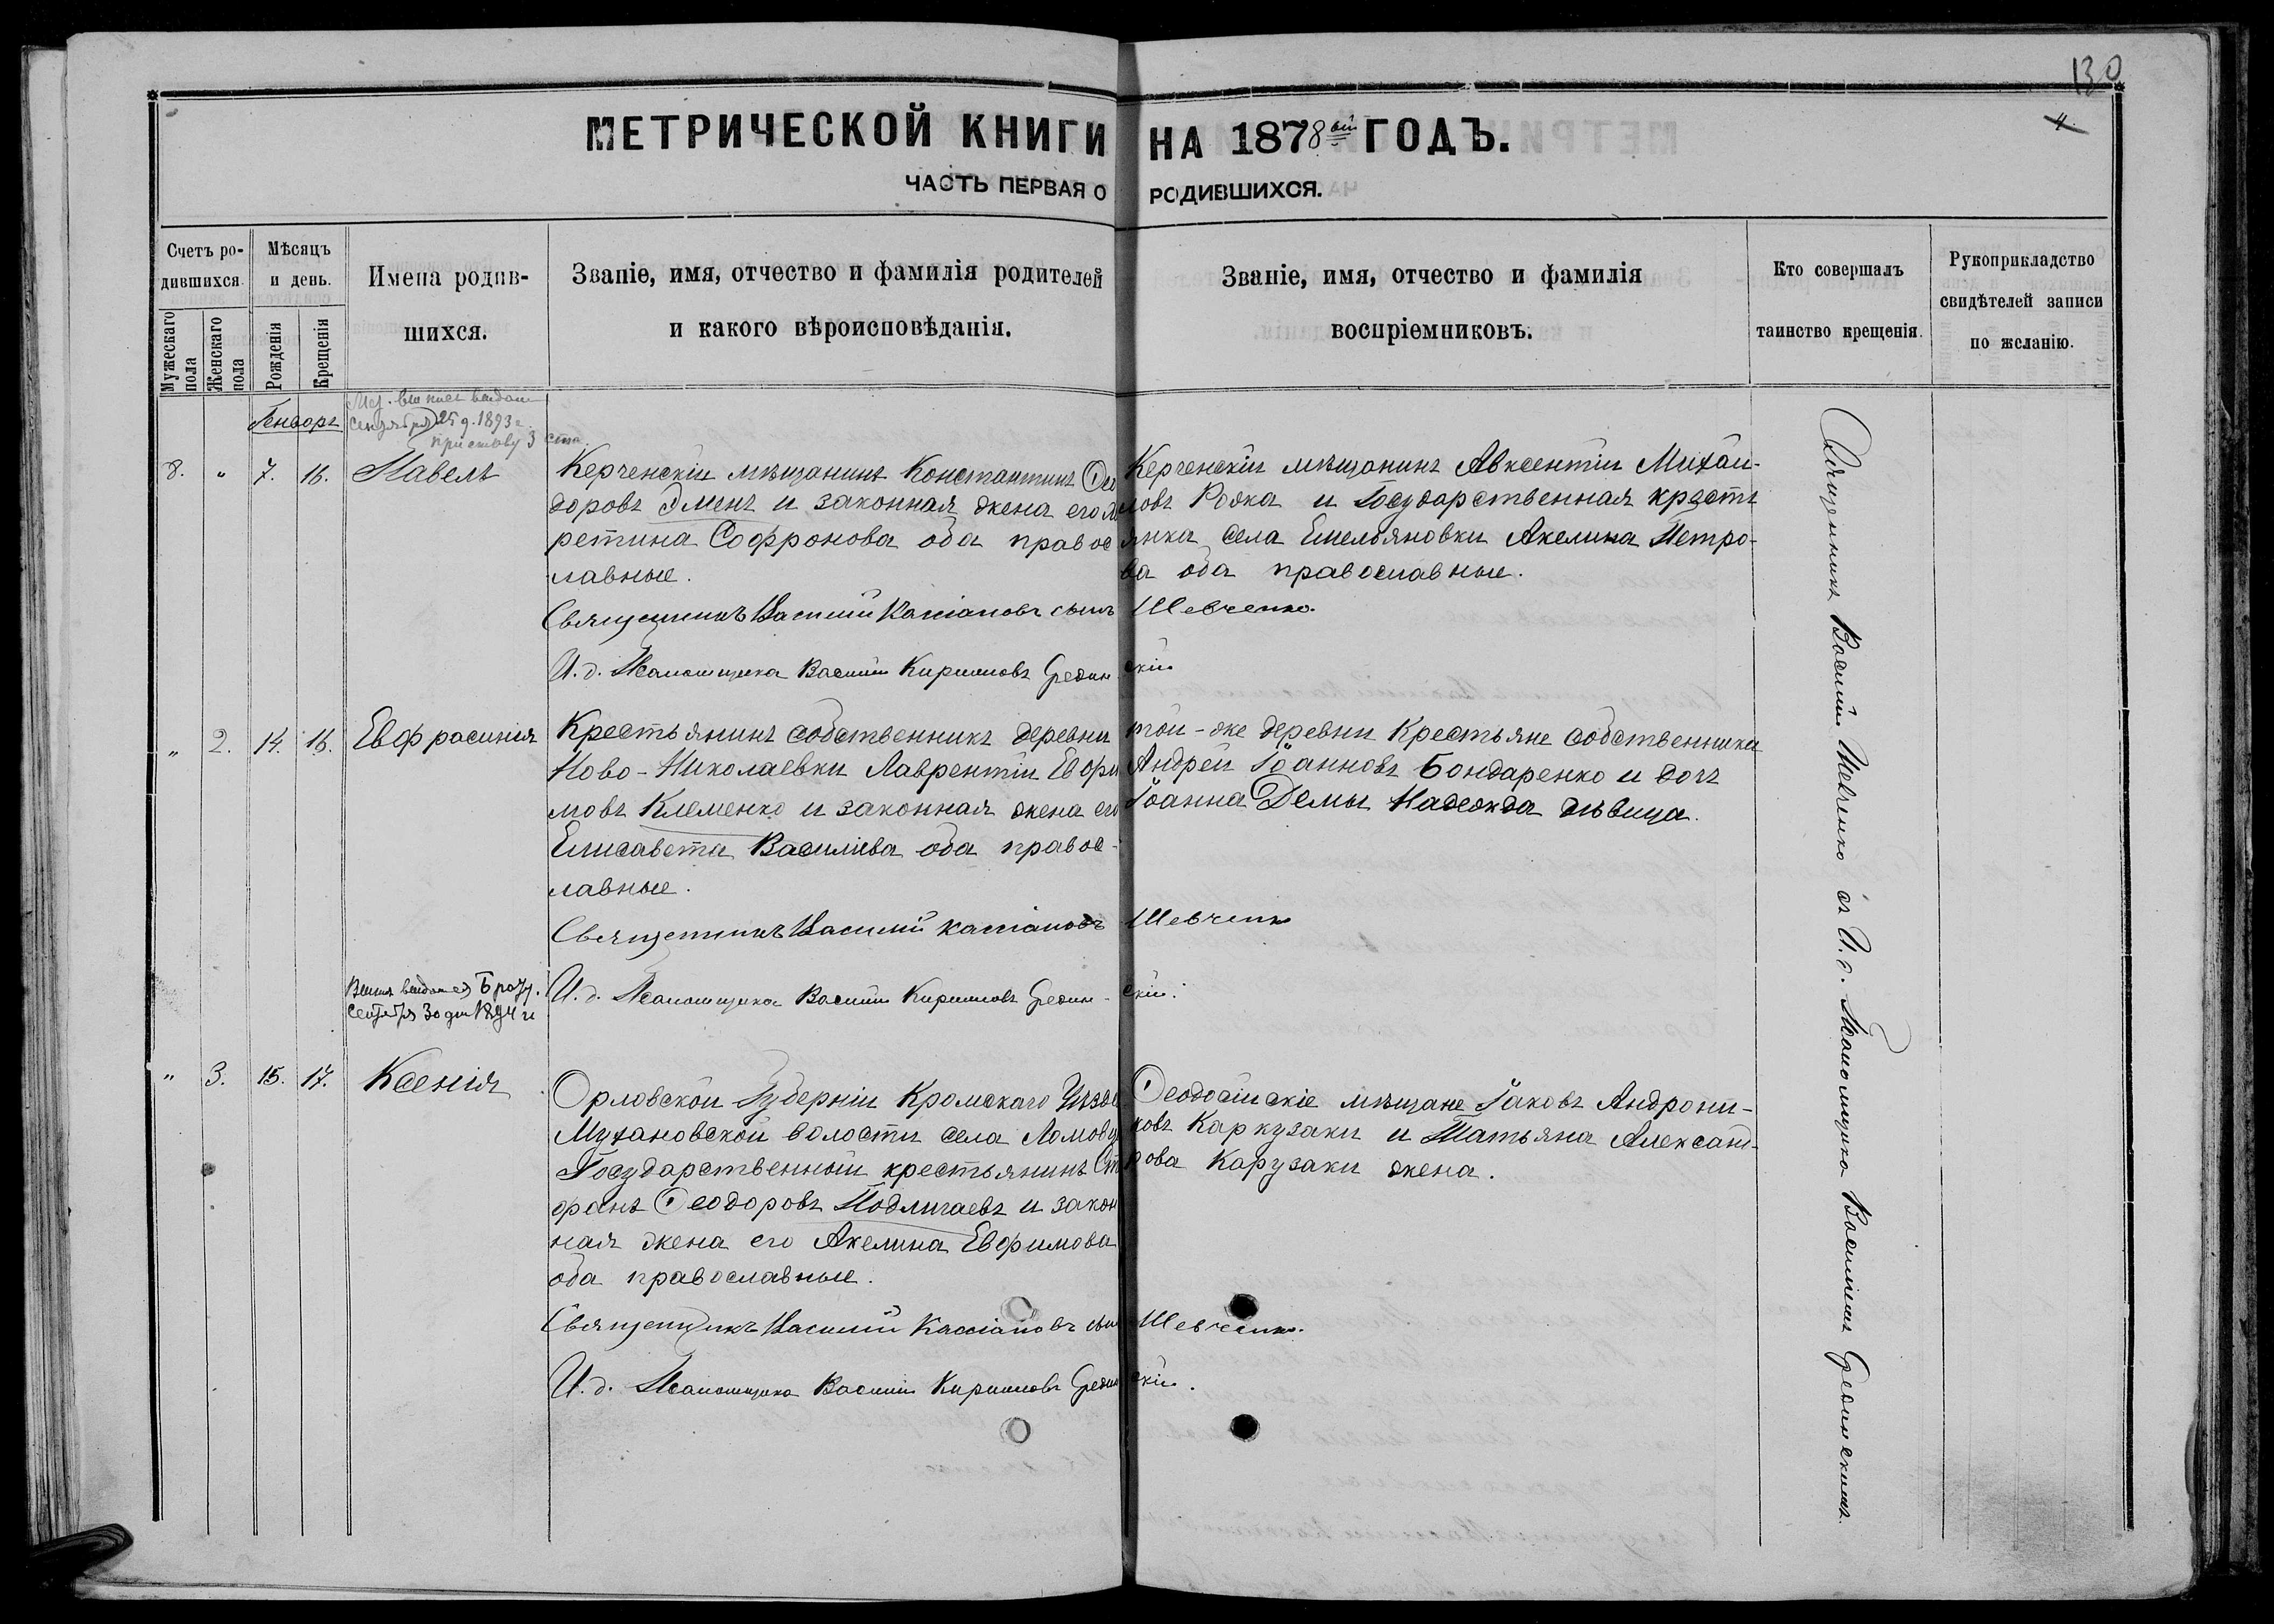 130
4.
МЕТРИЧЕСКОЙ КНИГИ НА 1878ой ГОДЪ.
ЧАСТЬ ПЕРВАЯ О РОДИВШИХСЯ.
Счетъ ро-
дившихся.
Мужескаго пола
Женскаго пола
Мѣсяцъ
и день.
Рожденія
Крещенія
Имена родив-
шихся.
Званіе, имя, отчество и фамилія родителей
и какого вѣроисповѣданія.
Званіе, имя, отчество и фамилія
воспріемниковъ.
Кто совершалъ
таинство крещенія.
Рукоприкладство
свидѣтелей записи
по желанію.
Генворь
Сентября 25 д. 1893 г.
приставу 3 ста.
8. " 7. 16. Павелъ
Керченскій мѣщанинъ Константинъ Ѳео
доровъ Эменъ и законная жена его М
ретина Софронова оба правос
лавные.
Керченскій мѣщанинъ Авксентій Михаи-
ловъ Рожка и Государственная кресть
янка села Емельяновки Акелина Петро-
ва оба православные.
Священникъ Василій Кассіановъ сынъ Шевченко.
И. д. Псаломщика Василій Кирилловъ Грединскій
" 2. 14. 16. Евфрасинія
Крестьянинъ собственникъ деревни
Ново-Николаевки Лаврентій Евфи
мовъ Клеменко и законная жена его
Елисавета Василіева оба правос-
лавные.
той-же деревни Крестьяне собственники
Андрей Іоанновъ Бондаренко и дочь
Іоанна Демы Надежда дѣвица.
Священникъ Василій Кассіановъ Шевченко
И. д. Псаломщика Василій Кирилловъ Гредин-скій.
Сентября 30 дня 1894 г
" 3. 15. 17. Ксенія
Орловской Губерніи Кромскаго Уѣзда
Мухановской волости села Ломовца
Государственный крестьянинъ Сте
фанъ Ѳеодоровъ Подлигаевъ и закон
ная жена его Акелина Евфимова
оба православные.
Ѳеодосійскіе мѣщане Іаковъ Андрони-
ковъ Каркузаки и Татьяна Александ-
рова Карузаки жена.
Священникъ Василій Кассіановъ сынъ Шевченко.
И. д. Псаломщика Василій Кирилловъ Грединскій.
Священникъ Василій Шевченко съ И. д. Псаломщика Василіемъ Грединскимъ.